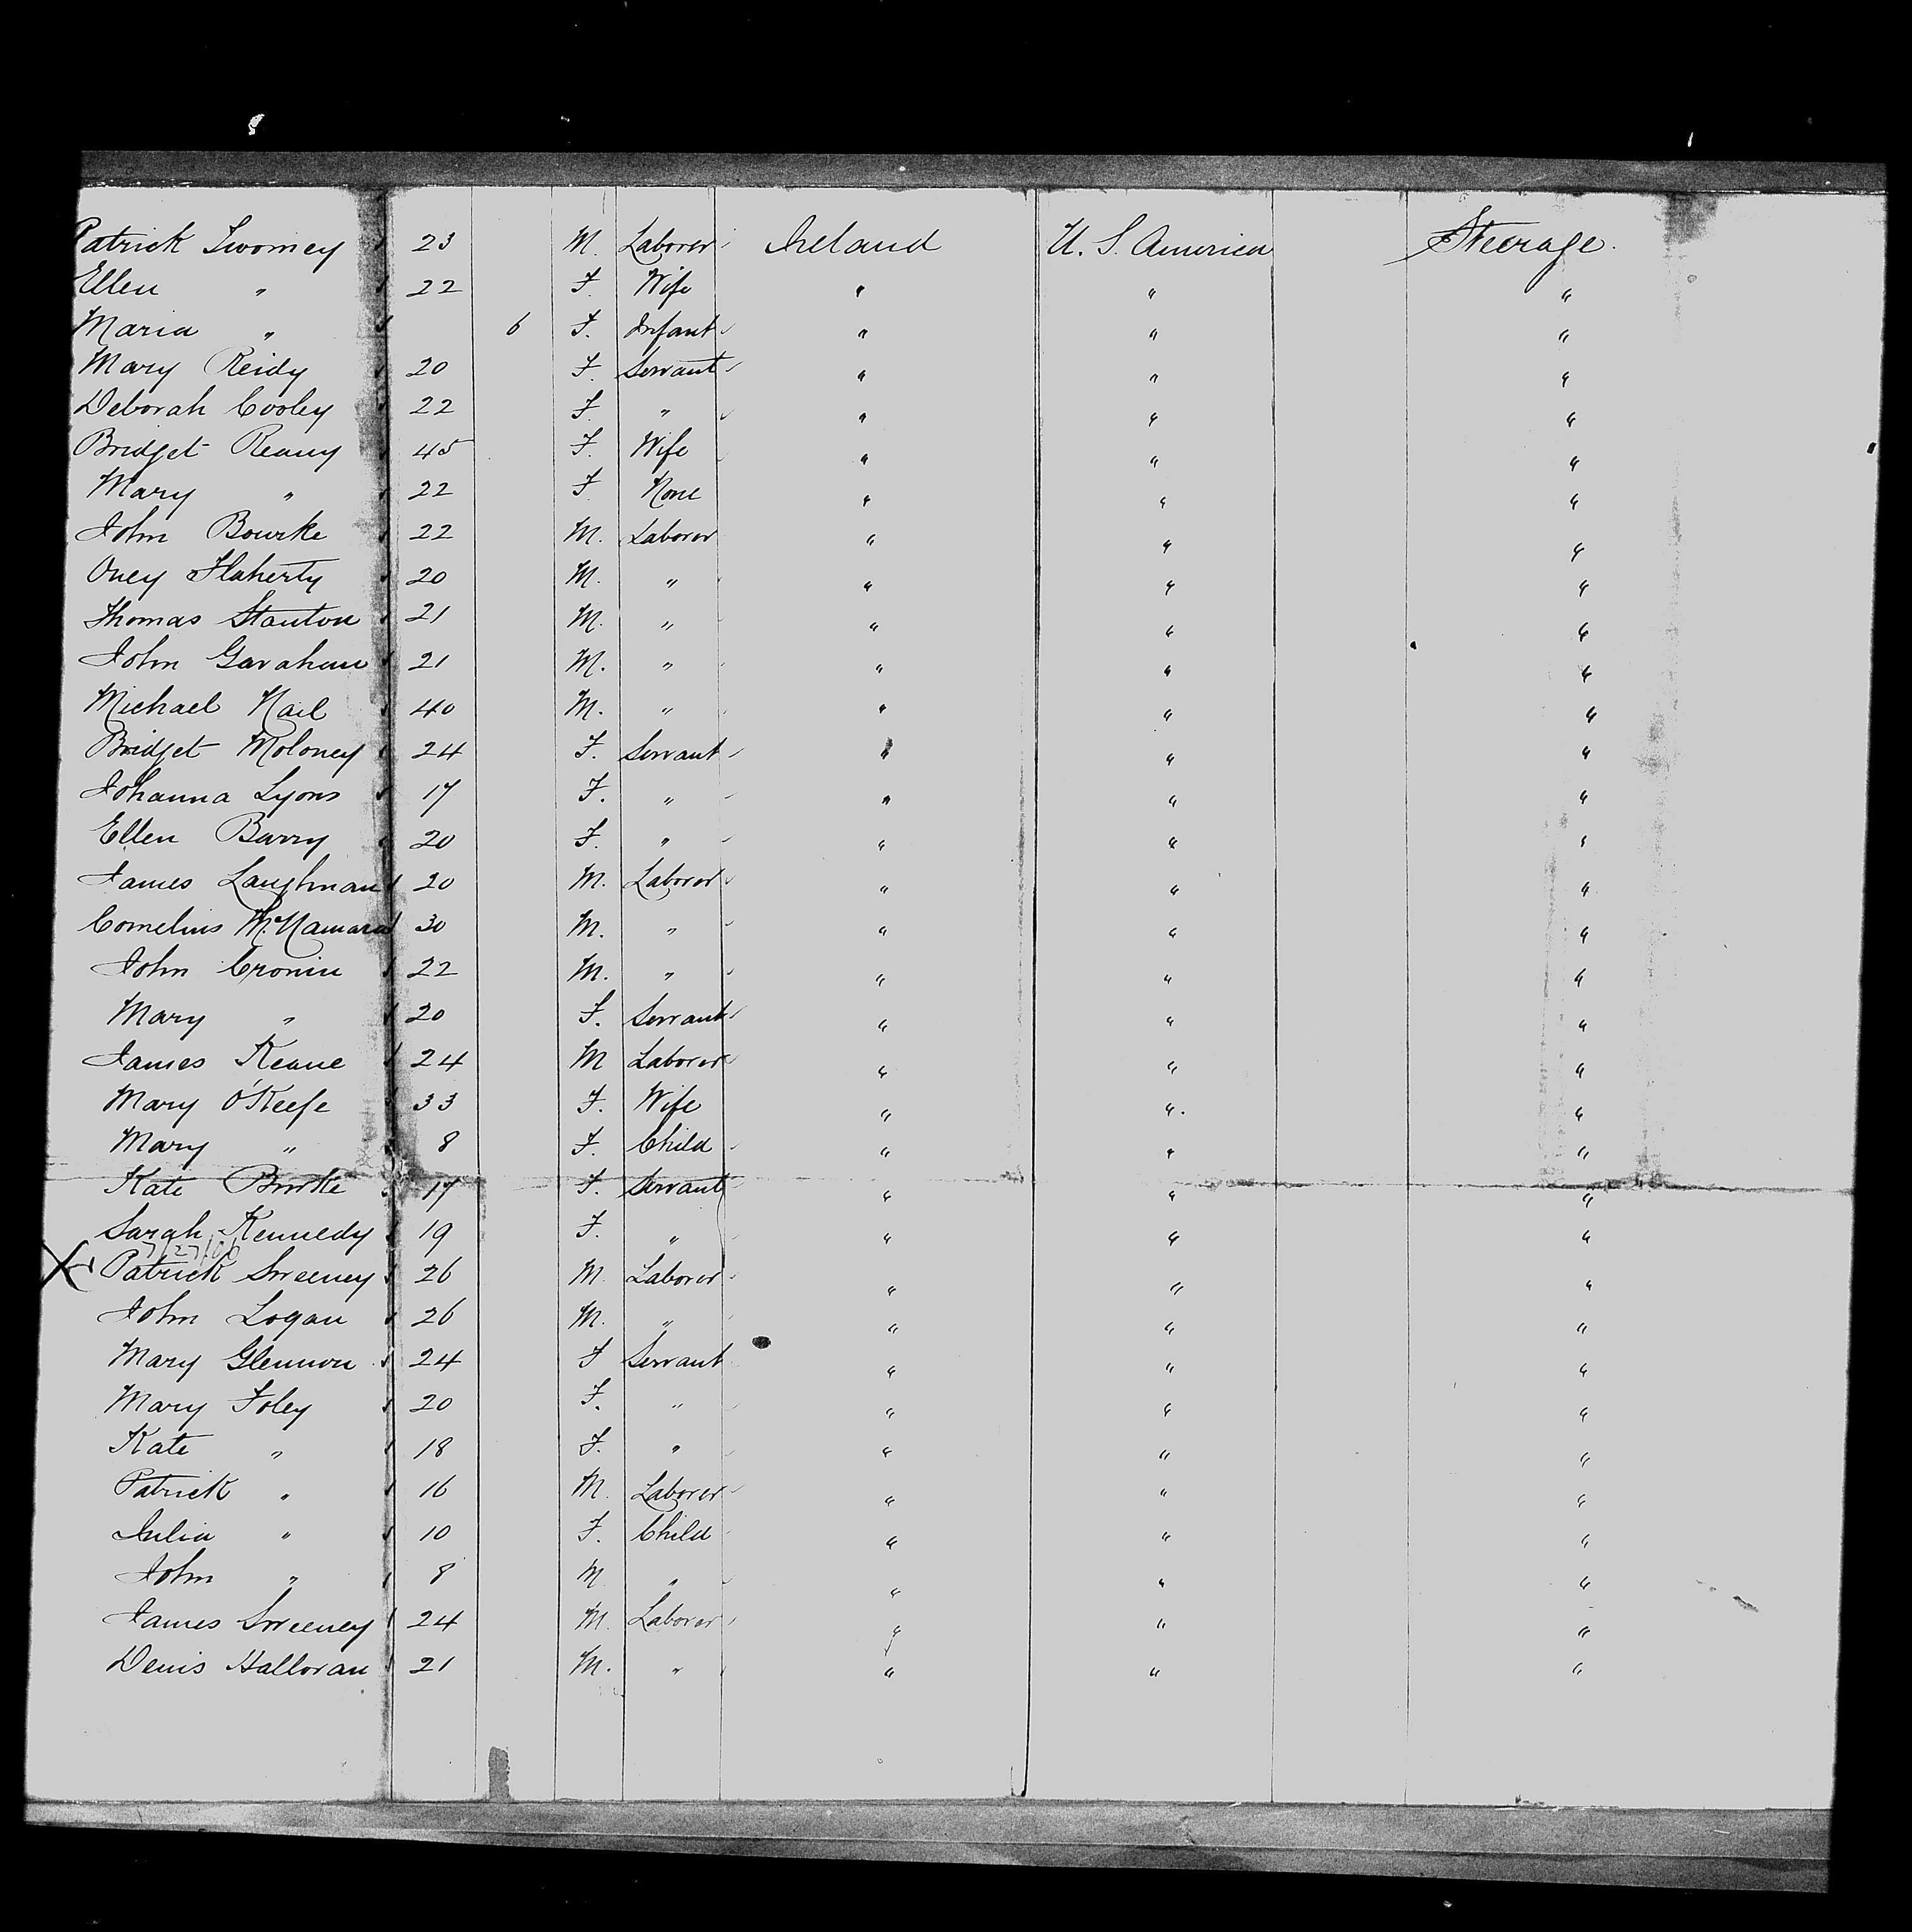 Patrick Twomey 23 M. Laborer Ireland U. S. America Steerage.
Ellen " 22 F. Wife " " "
Maria " 6 F. Infant " " "
Mary Reidy 20 F. Servant " " "
Deborah Cooley 22 F " " " "
Bridget Reany 45 F. Wife " " "
Mary " 22 F. None " " "
John Bourke 22 M. Laborer " " "
Oney Flaherty 20 M. " " " "
Thomas Stanton 21 M. " " " "
John Gavahan 21 M. " " " "
Michael Nail 40 M. " " " "
Bridget Moloney 24 F. Servant " " "
Johanna Lyons 17 F. " " " "
Ellen Barry 20 F. " " " "
James Laughnan 20 M. Laborer " " "
Cornelius McNamara 30 M. " " " "
John Cronin 22 M. " " " "
Mary " 20 F. Servant " " "
James Keane 24 M Laborer " " "
Mary O'Keefe 33 F. Wife " " "
Mary " 8 F. Child " " "
Kate Burke 17 F. Servant " " "
Sarah Kennedy 19 F. " " " "
7/27/06
X Patrick Sweeney 26 M. Laborer " " "
John Logan 26 M. " " " "
Mary Glennon 24 F Servant " " "
Mary Foley 20 F. " " " "
Kate " 18 F. " " " "
Patrick " 16 M. Laborer " " "
Julia " 10 F. Child " " "
John " 8 M " " " "
James Sweeney 24 M. Laborer " " "
Denis Halloran 21 M. " " " "